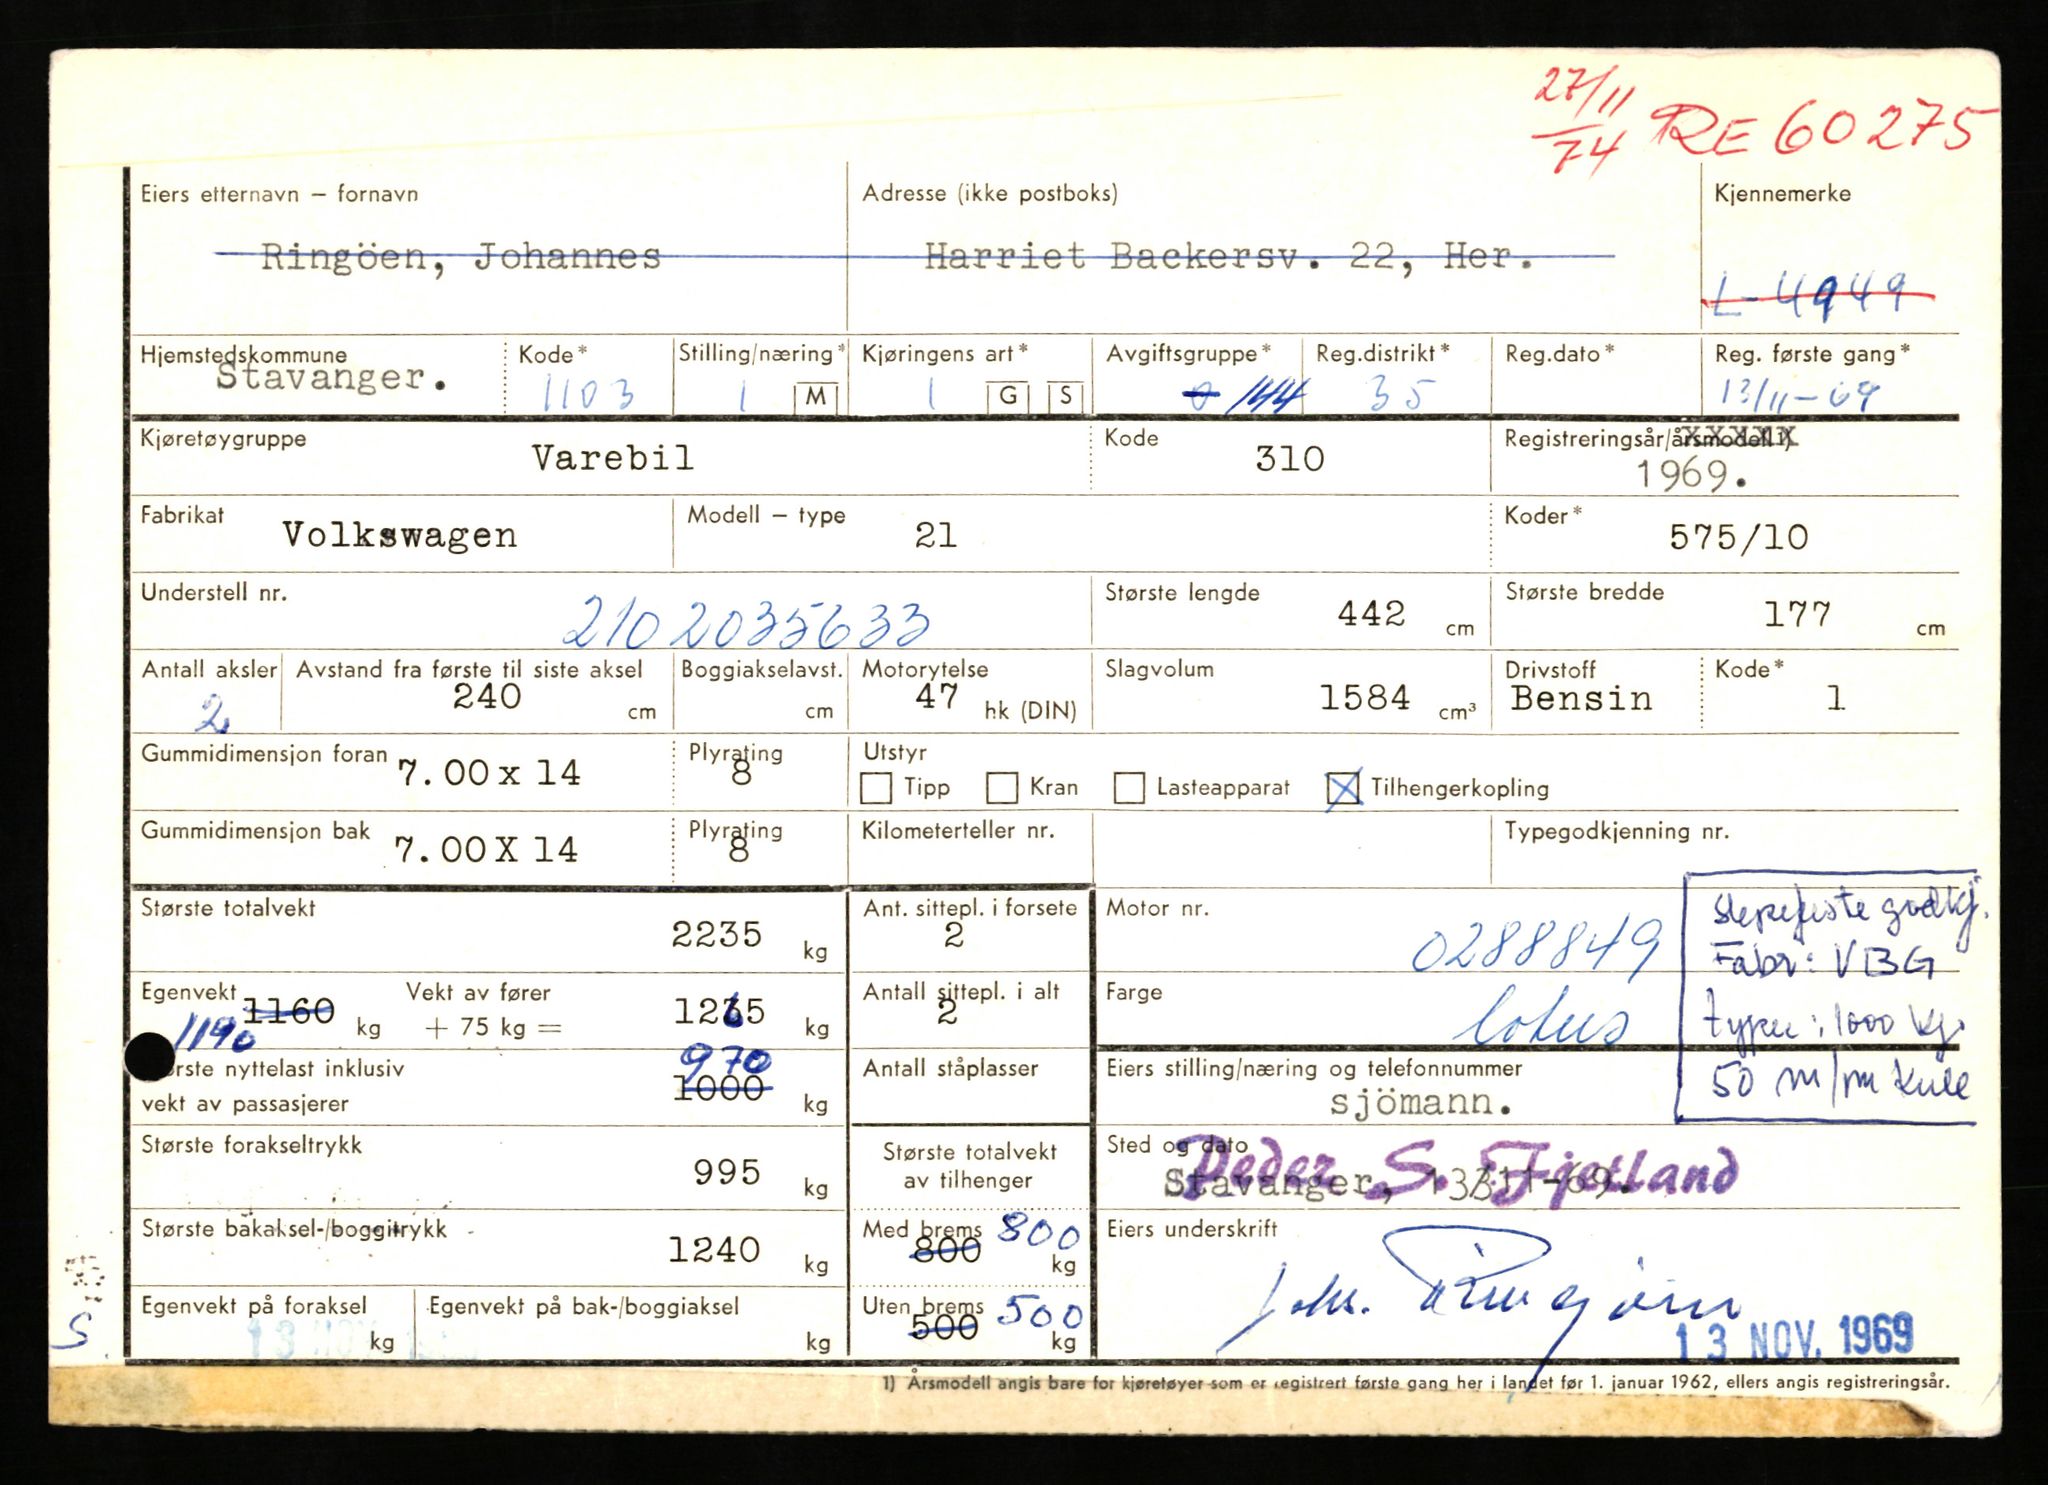 27/11
74 RE 60275
Eiers etternavn – fornavn Adresse (ikke postboks) Kjennemerke
Ringöen, Johannes Harriet Backersv. 22, Her.
L-4949
Hjemstedskommune Kode* Stilling/næring* Kjøringens art* Avgiftsgruppe* Reg.distrikt* Reg.dato* Reg. første gang*
Stavanger. 1103 1 M 1 G S 0 144 35 13/11-69
Kjøretøygruppe Kode Registreringsår/årsmodell 1)
Varebil 310 1969.
Fabrikat Modell – type Koder*
Volkswagen 21 575/10
Understell nr. Største lengde Største bredde
2102035633 442 cm 177 cm
Antall aksler Avstand fra første til siste aksel Boggiakselavst. Motorytelse Slagvolum Drivstoff Kode*
2 240 cm cm 47 hk (DIN) 1584 cm³ Bensin 1
Gummidimensjon foran 7.00 x 14 Plyrating 8 Utstyr
Tipp Kran Lasteapparat Tilhengerkopling
Gummidimensjon bak 7.00 X 14 Plyrating 8 Kilometerteller nr. Typegodkjenning nr.
Største totalvekt 2235 kg Ant. sittepl. i forsete 2 Motor nr. 0288849
Slepefeste godkj.
Fabr: VBG
Egenvekt 1160 1190 kg Vekt av fører + 75 kg = 1265 kg Antall sittepl. i alt 2 Farge lotus
type: 1000 kg
50 m/m kule
Største nyttelast inklusiv vekt av passasjerer 970 1000 kg Antall ståplasser Eiers stilling/næring og telefonnummer
sjömann.
Største forakseltrykk 995 kg Største totalvekt av tilhenger Sted og dato
Peder S. Fjetland
Stavanger, 13/11-69.
Største bakaksel-/boggitrykk 1240 kg Med brems 800 800 kg Eiers underskrift
Johs. Ringöen
Egenvekt på foraksel kg Egenvekt på bak-/boggiaksel kg Uten brems 500 500 kg
S
13 NOV. 1969
1) Årsmodell angis bare for kjøretøyer som er registrert første gang her i landet før 1. januar 1962, ellers angis registreringsår.